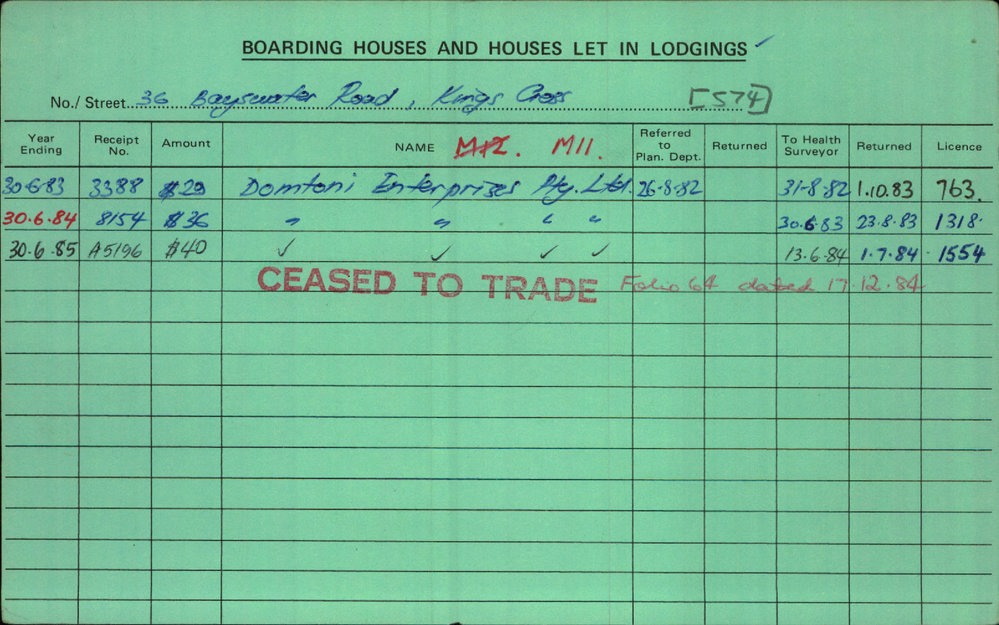 BOARDING HOUSES AND HOUSES LET IN LODGINGS ✓
No./ Street 36 Bayswater Road, Kings Cross [574]
Year Ending Receipt No. Amount NAME M12. M11. Referred to Plan. Dept. Returned To Health Surveyor Returned Licence
30.6.83 3388 $29 Domtoni Enterprises Pty. Ltd. 26.8.82 31.8.82 1.10.83 763.
30.6.84 8154 $36 " " " " 30.6.83 23.8.83 1318.
30.6.85 A5196 $40 ✓ ✓ ✓ ✓ 13.6.84 1.7.84 1554
CEASED TO TRADE Folio 64 dated 17.12.84